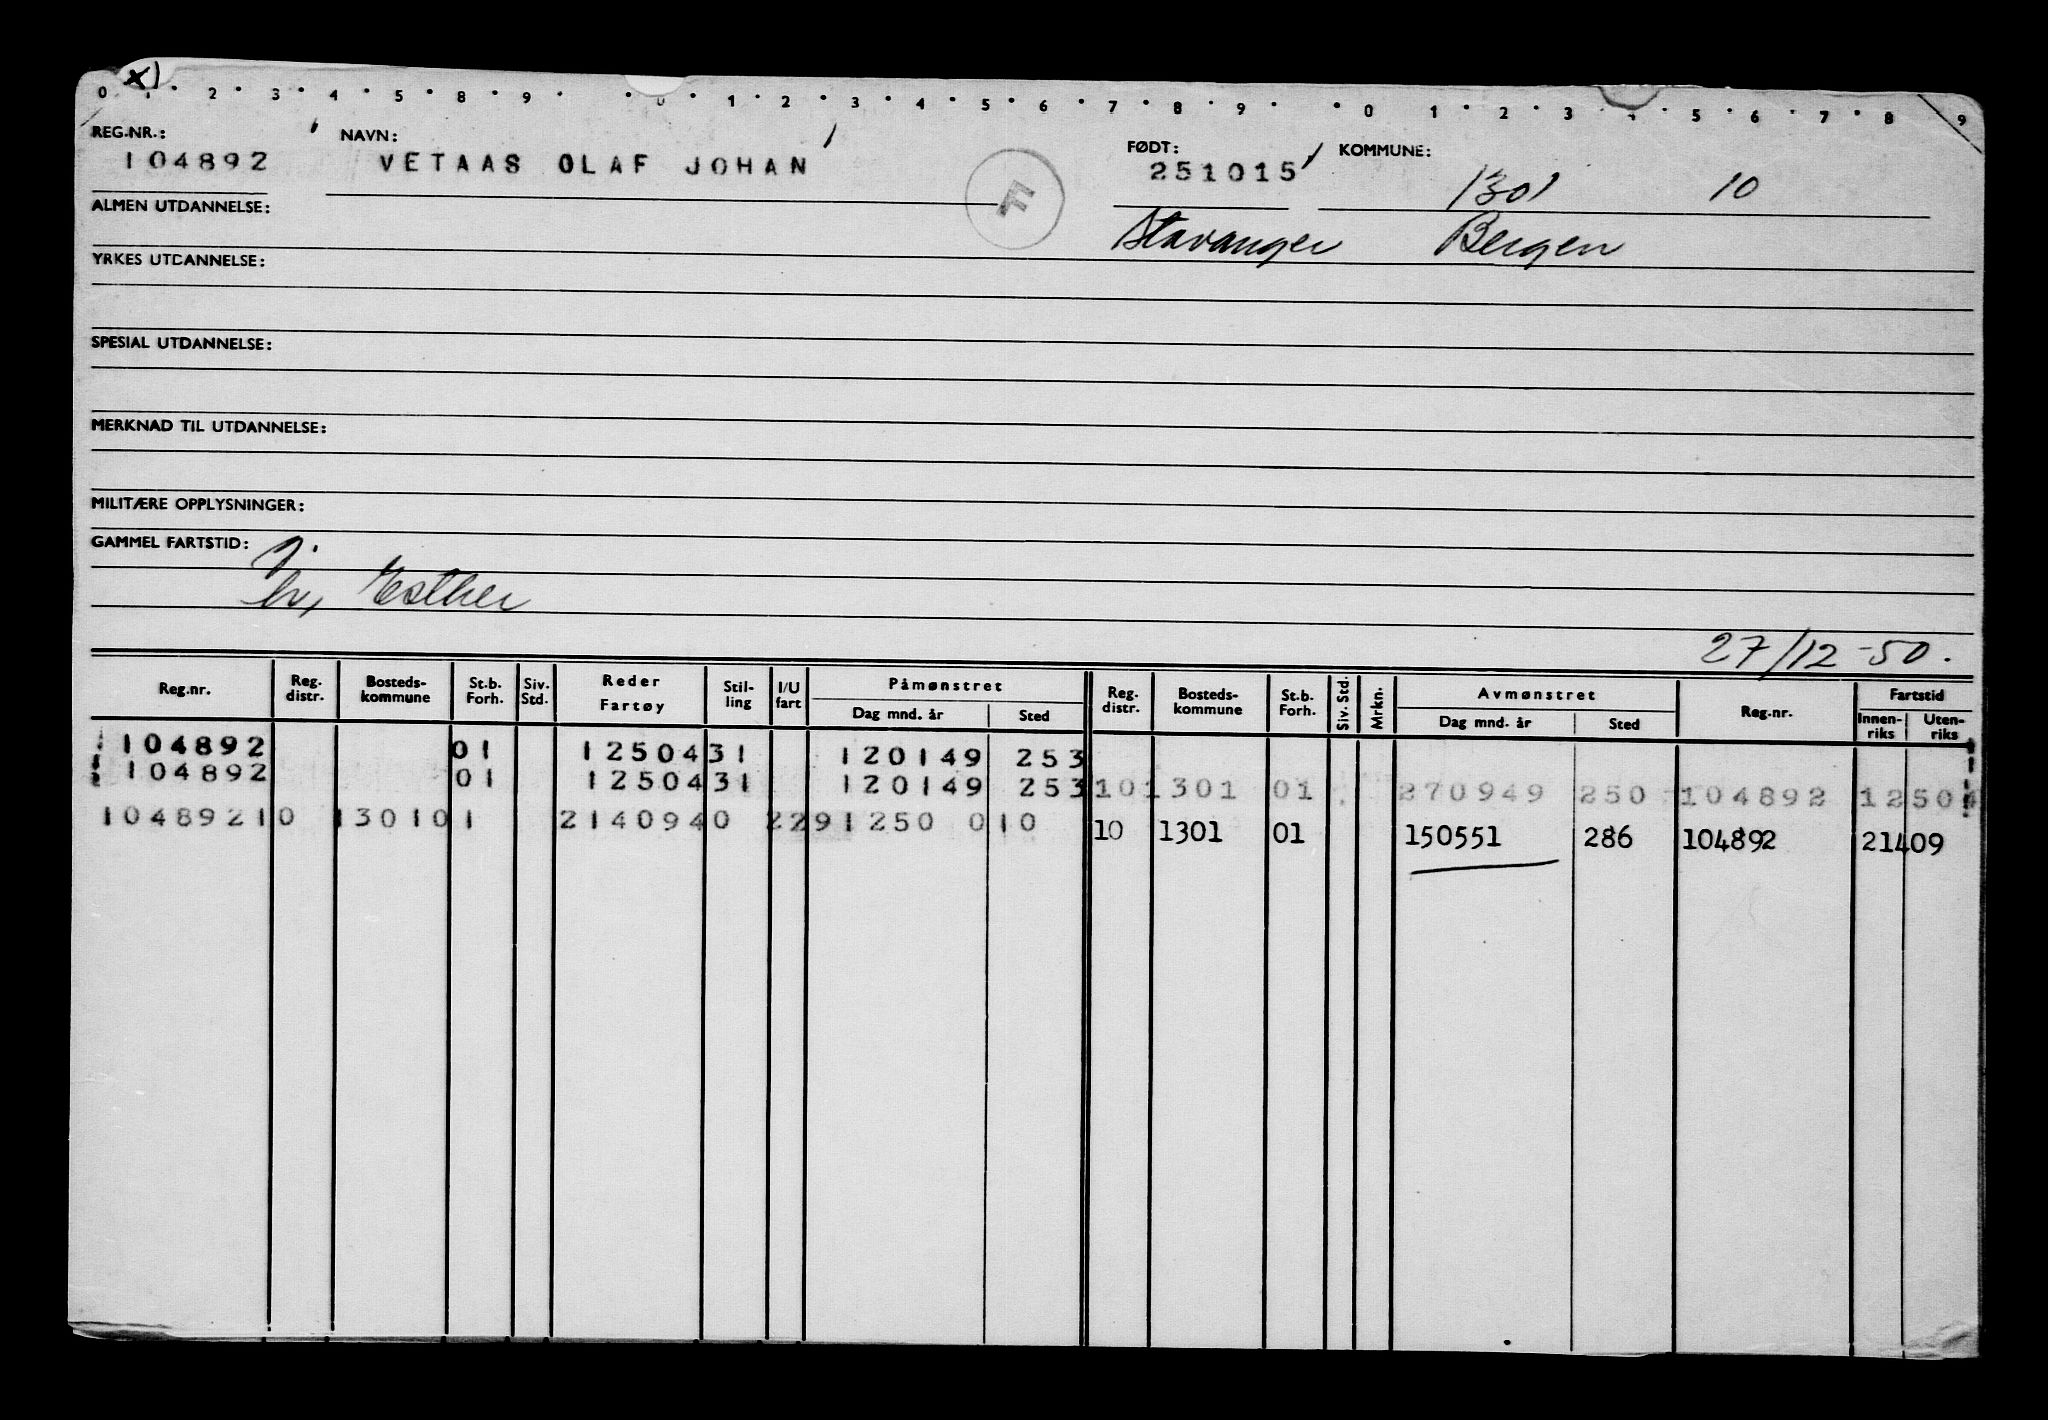 x)
0 1 2 3 4 5 8 9 0 1 2 3 4 5 6 7 8 9 0 1 2 3 4 5 6 7 8 9
REG.NR.: NAVN: FØDT: KOMMUNE:
104892 VETAAS OLAF JOHAN 251015 1301 10
F
ALMEN UTDANNELSE: Stavanger Bergen
YRKES UTDANNELSE:
SPESIAL UTDANNELSE:
MERKNAD TIL UTDANNELSE:
MILITÆRE OPPLYSNINGER:
GAMMEL FARTSTID:
Esther
27/12-50.
Reg.nr. Reg. distr. Bosteds- kommune St.b. Forh. Siv. Std. Reder Fartøy Stil- ling I/U fart Påmønstret Dag mnd. år Sted Reg. distr. Bosteds- kommune St.b. Forh. Siv. Std. Mrkn. Avmønstret Dag mnd. år Sted Reg.nr. Fartstid Innen- riks Uten- riks
104892 01 1250431 120149 253
104892 01 1250431 120149 253 101301 01 270949 250 104892 12504
10489210 1301001 2140940 2291250 010 10 1301 01 150551 286 104892 21409